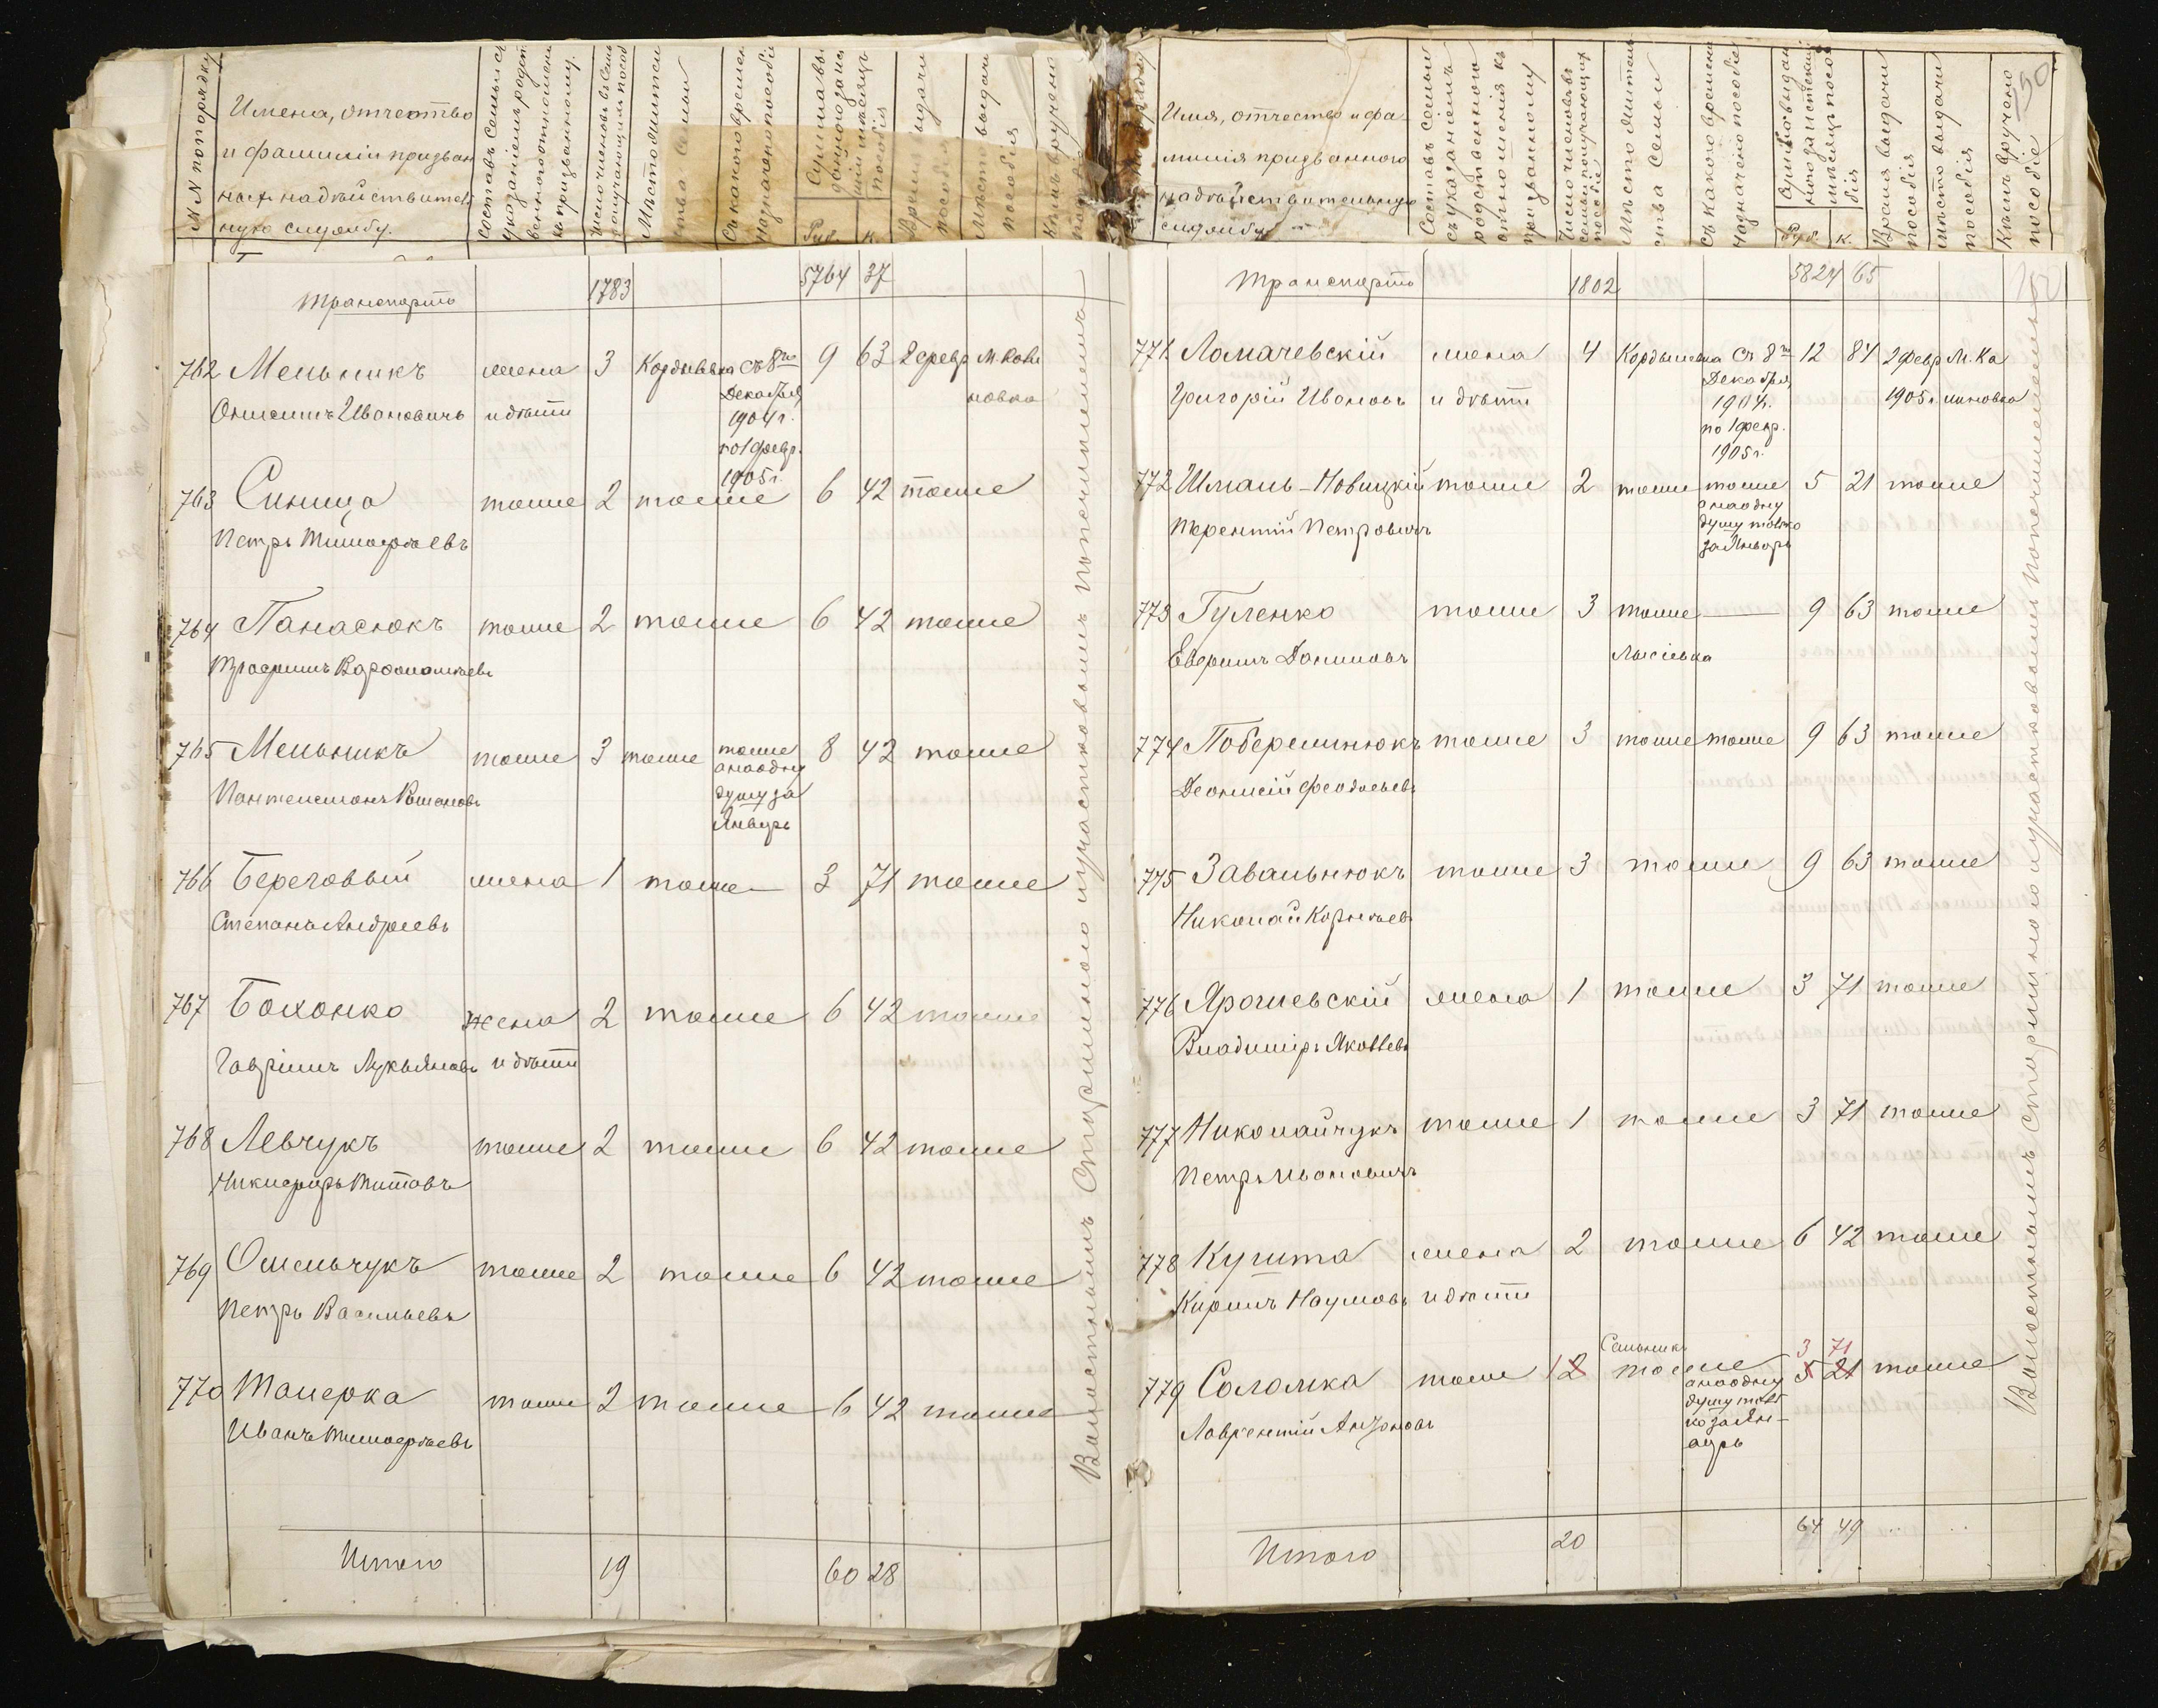 №№ по порядку
Имена, отчество
и фамиліи призван
ных на дѣйствител
ную службу.
Составъ семьи съ
указаніемъ родст
веннаго отношенія
къ призванному.
Число членовъ въ семь
получающихъ пособ
Мѣстожительс
тва Семьи
Съ какого времен
назначено пособіе
Сумма вы
даннаго
пособія
Руб. К.
Время выдачи
пособія
Мѣсто выдачи
пособія
Кѣмъ вручено
Транспортъ 1783 5764 37
762 Мельникъ жена 3 Кордышевка Съ 8го 9 63 2 февр М. Кали
Онисимъ Ивановичъ и дѣти Декабря новка
1904 г.
по 1 февр.
1905 г.
763 Синица тоже 2 тоже 6 42 тоже
Петръ Тимофѣевъ
764 Панасюкъ тоже 2 тоже 6 42 тоже
Трофимъ Варфоломѣевъ
765 Мельникъ тоже 3 тоже тоже 8 42 тоже
а на одну
Пантелимонъ Романовъ душу за
Январь
766 Береговый жена 1 тоже 3 71 тоже
Степанъ Андреевъ
767 Бохонко жена 2 тоже 6 42 тоже
Гавріилъ Лукьяновъ и дѣти
768 Левчукъ тоже 2 тоже 6 42 тоже
Никифоръ Титовъ
769 Омельчукъ тоже 2 тоже 6 42 тоже
Петръ Васильевъ
770 тоже 2 тоже 6 42 тоже
Иванъ Тимофѣевъ
Итого 19 60 28
Волостнымъ Старшиною и участковымъ попечителемъ
50
Имя, отчество и фа
милія призваннаго
на дѣйствительную
службу
Составъ семьи
съ указаніемъ
родственнаго
отношенія къ
призванному
Число членовъ
семьи получающихъ
пособіе
Мѣстожитель
ства Семьи
Съ какого времени
назначено пособіе
Руб. К.
Время выдачи
пособія
Мѣсто выдачи
пособія
Кѣмъ вручено
пособіе
Транспортъ 1802 5824 65
771 Ломачевскій жена 4 Кордышевка Съ 8го 12 84 2 февр М. Ка
Григорій Ивановъ и дѣти Декабря 1905 г. линовка
1904 г.
по 1 февр.
1905 г.
772 Шмаль-Новицкій тоже 2 тоже тоже 5 21 тоже
а на одну
Терентій Петровичъ душу только
за Январь
773 Гуленко тоже 3 тоже 9 63 тоже
Евфимъ Даниловъ Лысіевка
774 Побережнюкъ тоже 3 тоже тоже 9 63 тоже
Деонисій Феодосьевъ
775 Завальнюкъ тоже 3 тоже 9 63 тоже
Николай Корнѣевъ
776 Ярошевскій жена 1 тоже 3 71 тоже
Владиміръ Яковлевъ
777 Николайчукъ тоже 1 тоже 3 71 тоже
Петръ Ивановичъ
778 Кушта жена 2 тоже 6 42 тоже
Кирилъ Наумовъ и дѣти
Сальникъ 3 71
779 Соломка тоже 1 2 тоже 5 21 тоже
а на одну
Лаврентій Антоновъ душу толь
ко за Ян-
варь
Итого 20 64 49
Волостнымъ Старшиною и участковымъ попечителемъ